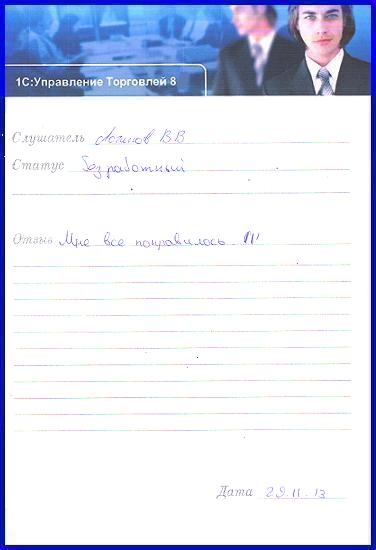 1С:Управление Торговлей 8
Слушатель Логинов В В
Статус безработный
Отзыв Мне все понравилось !!!
Дата 29.11.13